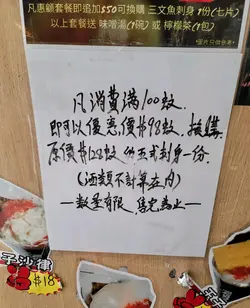 凡惠顧套餐即追加$50可換購 三文魚刺身1份(七片)
以上套餐送 味噌湯(1碗) 或 檸檬茶(1包)
凡消費滿100蚊
即可以優惠價$98蚊,換購
原價$128蚊的五式刺身一份.
(酒類不計算在內)
—數量有限,售完為止—
子沙律
$18